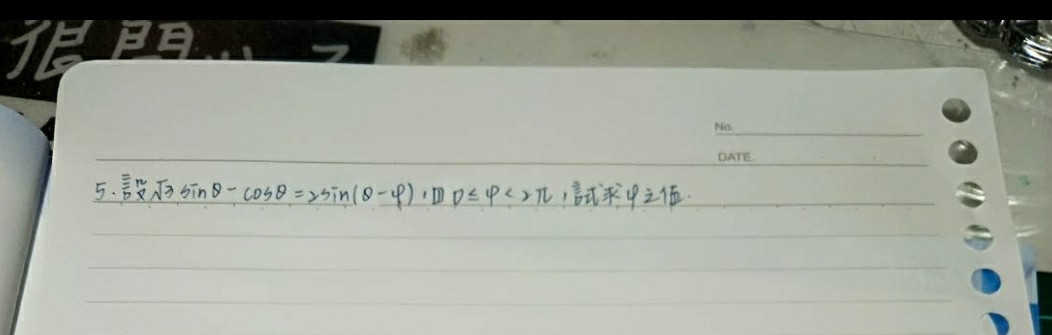 很悶
No.
DATE.
5.設√3 sinθ - cosθ = 2sin(θ-φ),且 0≤φ<2π,試求φ之值.